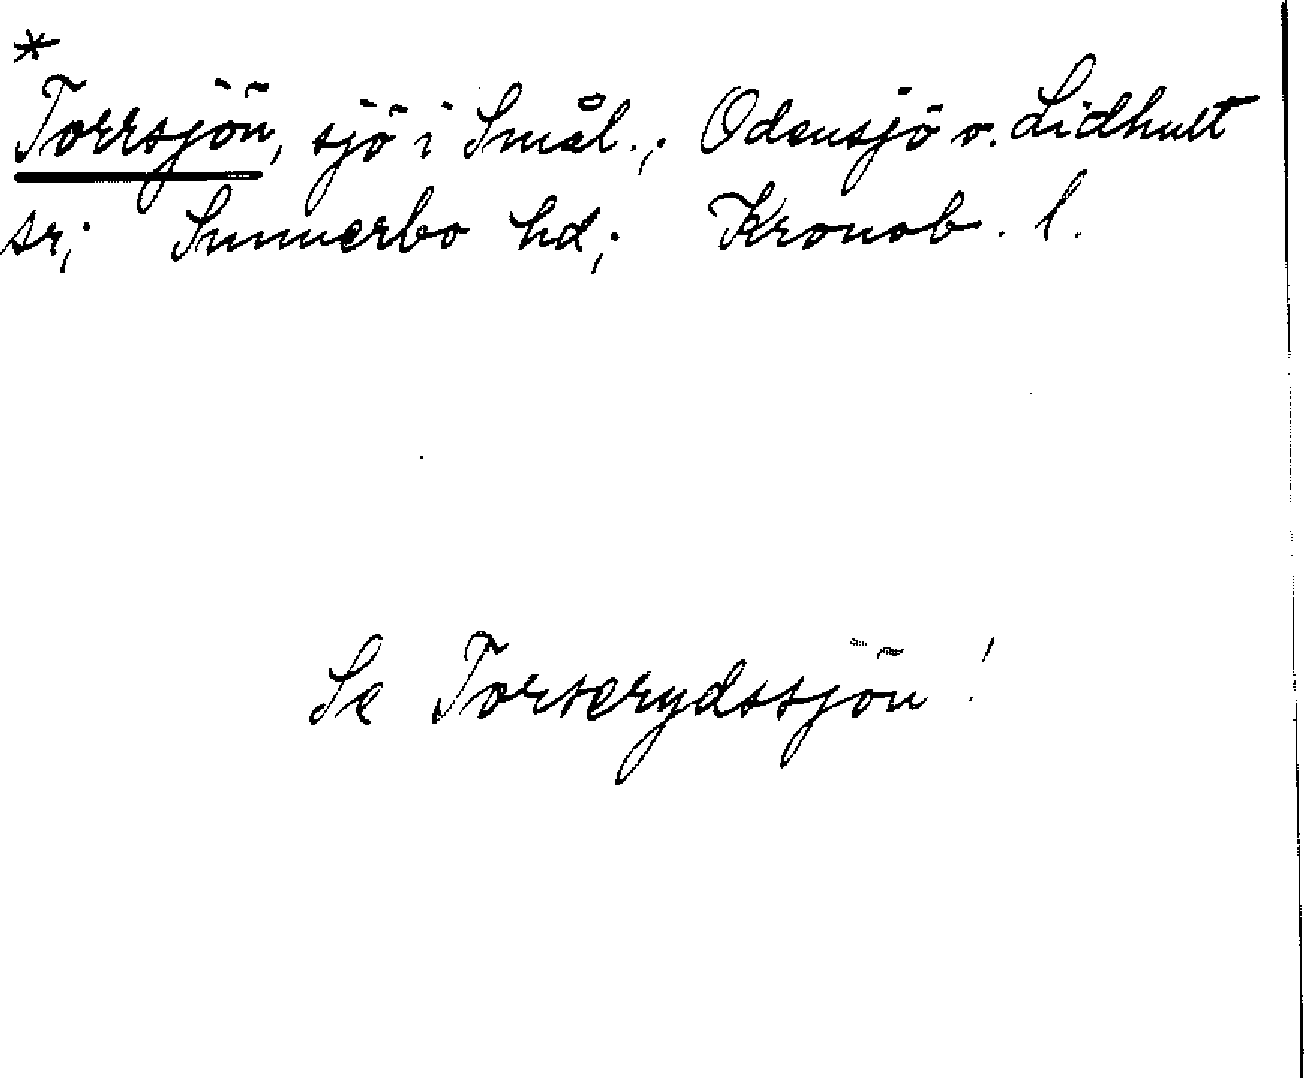 *
Torrsjön, sjö i Smål.; Odensjö o. Lidhult
sr; Sunnerbo hd; Kronob. l.
Se Torserydssjön!